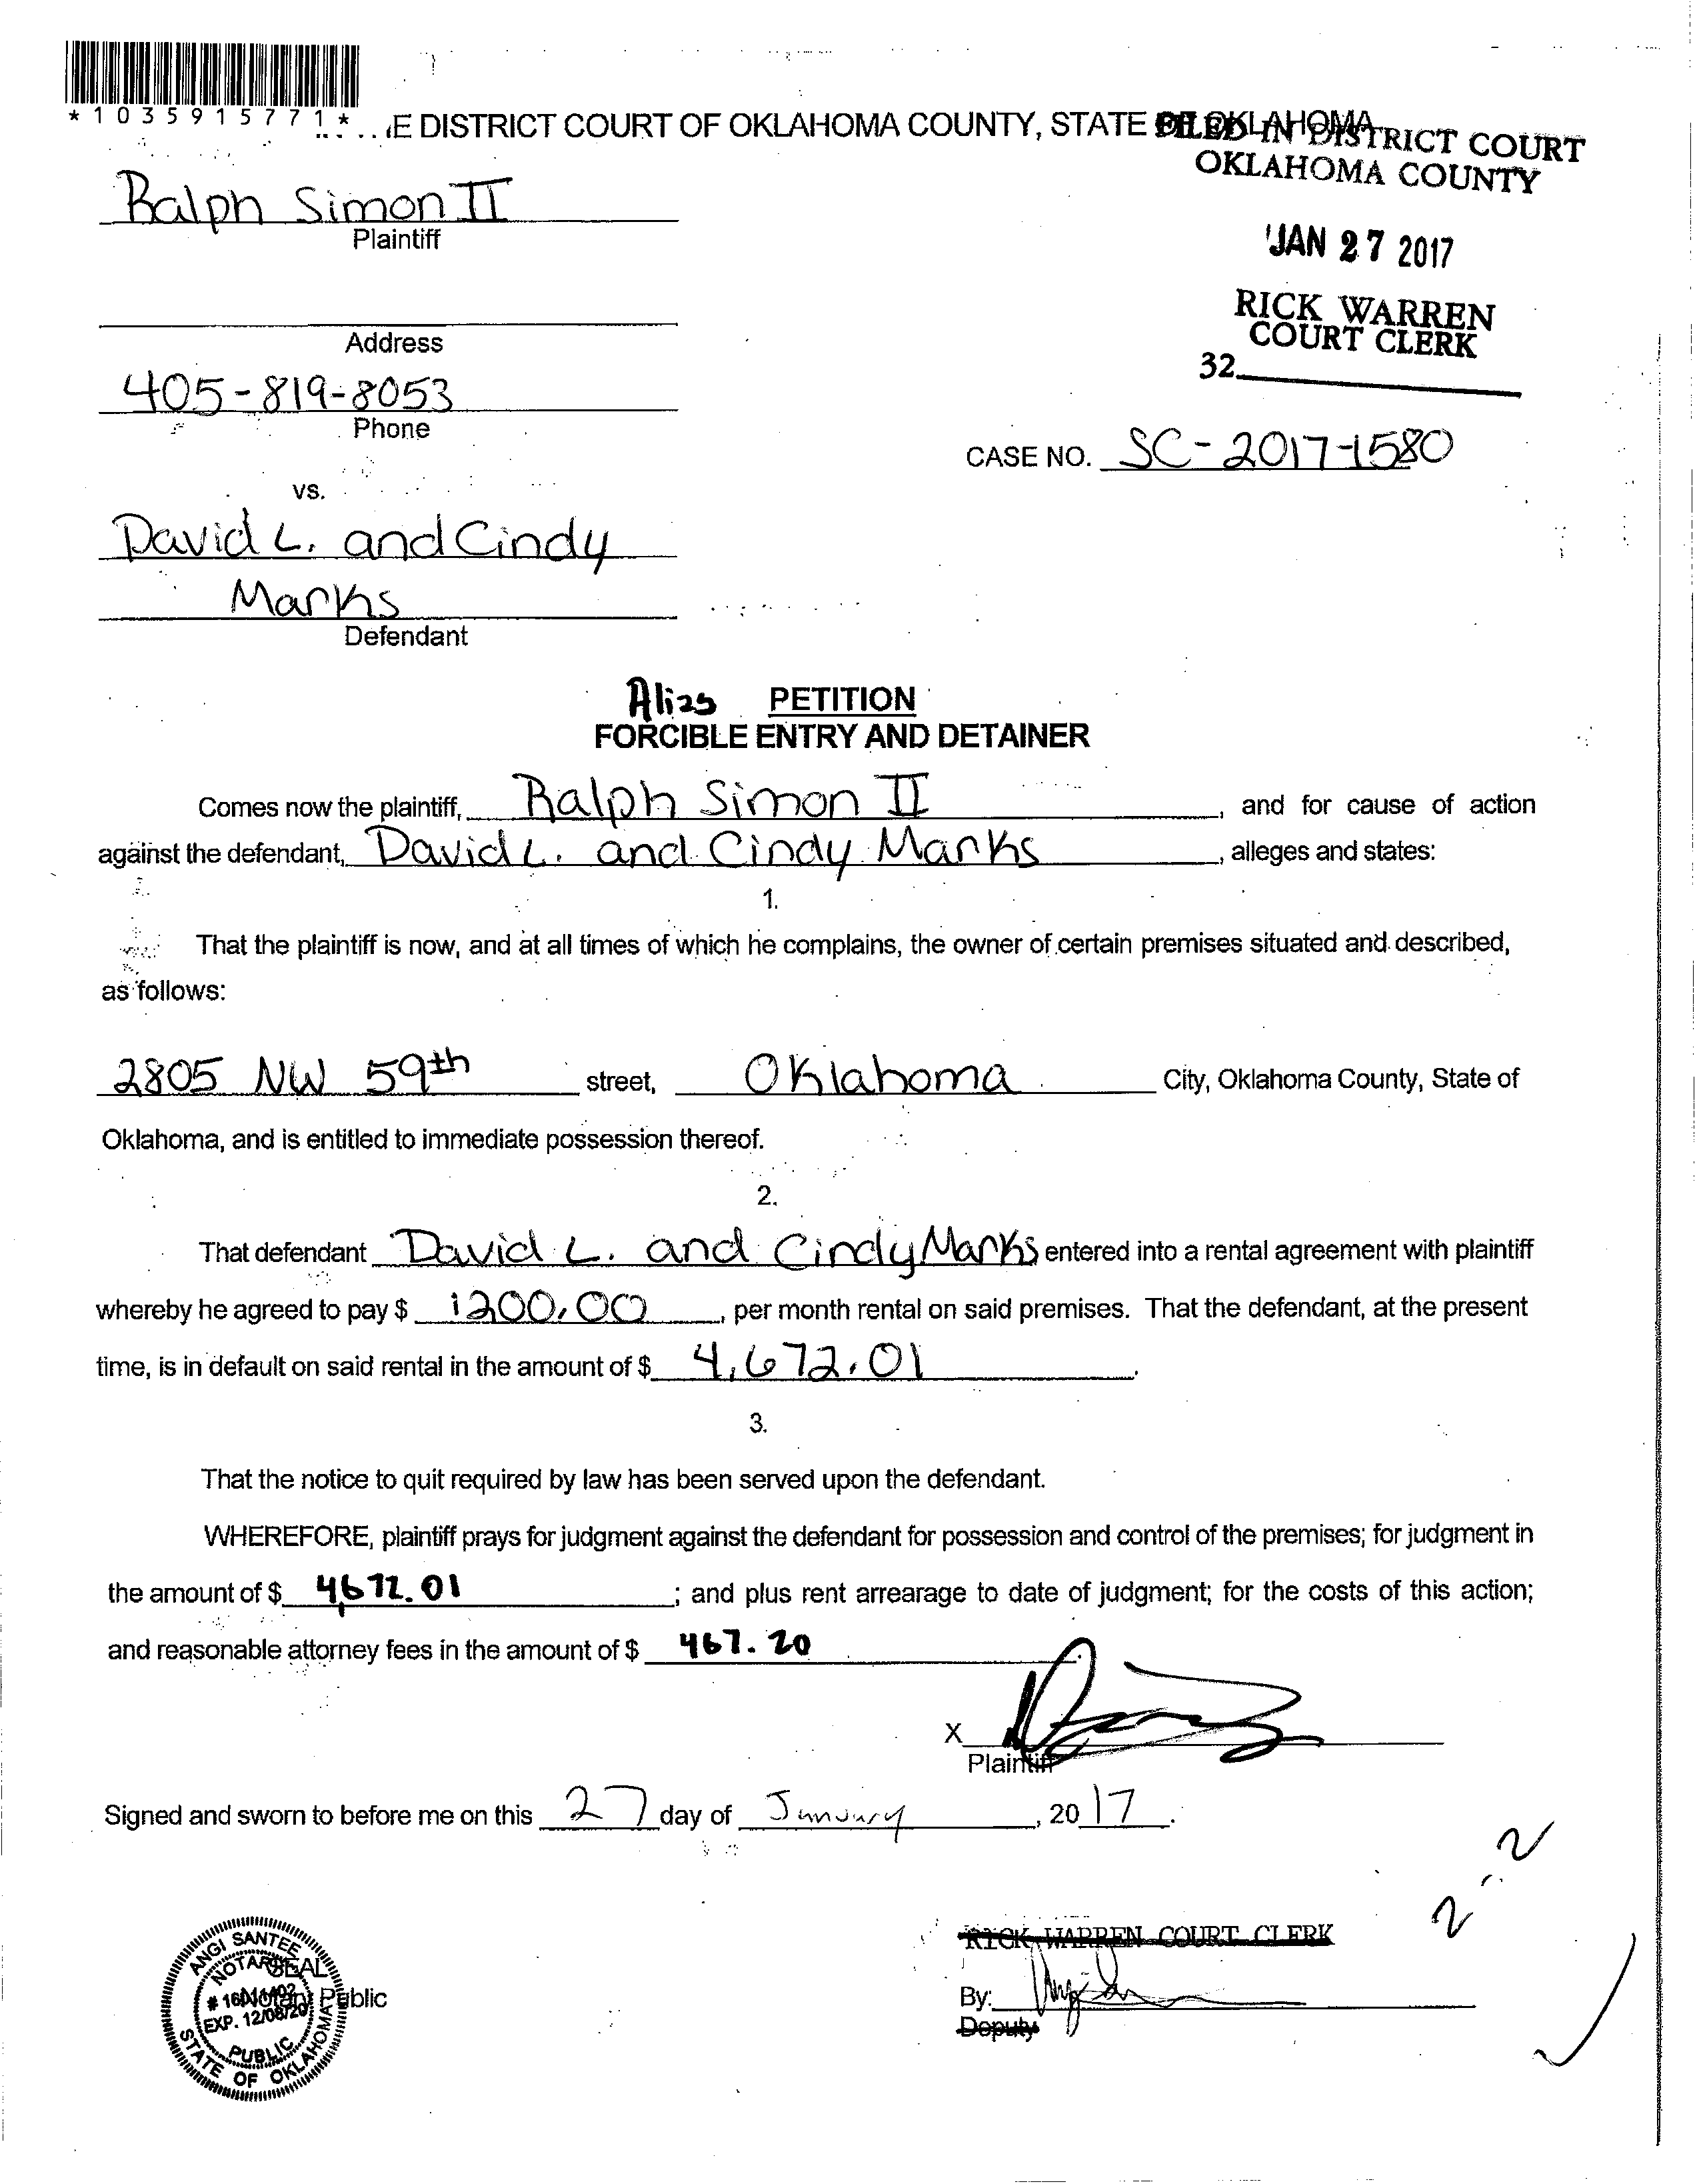 *1035915771*
E DISTRICT COURT OF OKLAHOMA COUNTY, STATE OF OKLAHOMA
FILED IN DISTRICT COURT
OKLAHOMA COUNTY
JAN 27 2017
RICK WARREN
COURT CLERK
32
Ralph Simon II
Plaintiff
Address
405-819-8053
Phone
CASE NO. SC-2017-1580
vs.
David L. and Cindy
Marks
Defendant
Alias PETITION
FORCIBLE ENTRY AND DETAINER
Comes now the plaintiff, Ralph Simon II, and for cause of action
against the defendant, David L. and Cindy Marks, alleges and states:
1.
That the plaintiff is now, and at all times of which he complains, the owner of certain premises situated and described,
as follows:
2805 NW 59th street, Oklahoma City, Oklahoma County, State of
Oklahoma, and is entitled to immediate possession thereof.
2.
That defendant David L. and Cindy Marks entered into a rental agreement with plaintiff
whereby he agreed to pay $ 1200.00, per month rental on said premises. That the defendant, at the present
time, is in default on said rental in the amount of $ 4,672.01.
3.
That the notice to quit required by law has been served upon the defendant.
WHEREFORE, plaintiff prays for judgment against the defendant for possession and control of the premises; for judgment in
the amount of $ 4,672.01; and plus rent arrearage to date of judgment; for the costs of this action;
and reasonable attorney fees in the amount of $ 467.20
X
Plaintiff
Signed and sworn to before me on this 27 day of January, 2017.
2-2
ANGI SANTEE
NOTARY
SEAL
Notary Public
EXP. 12/08/20
PUBLIC
STATE OF OKLAHOMA
RICK WARREN COURT CLERK
By:
Deputy